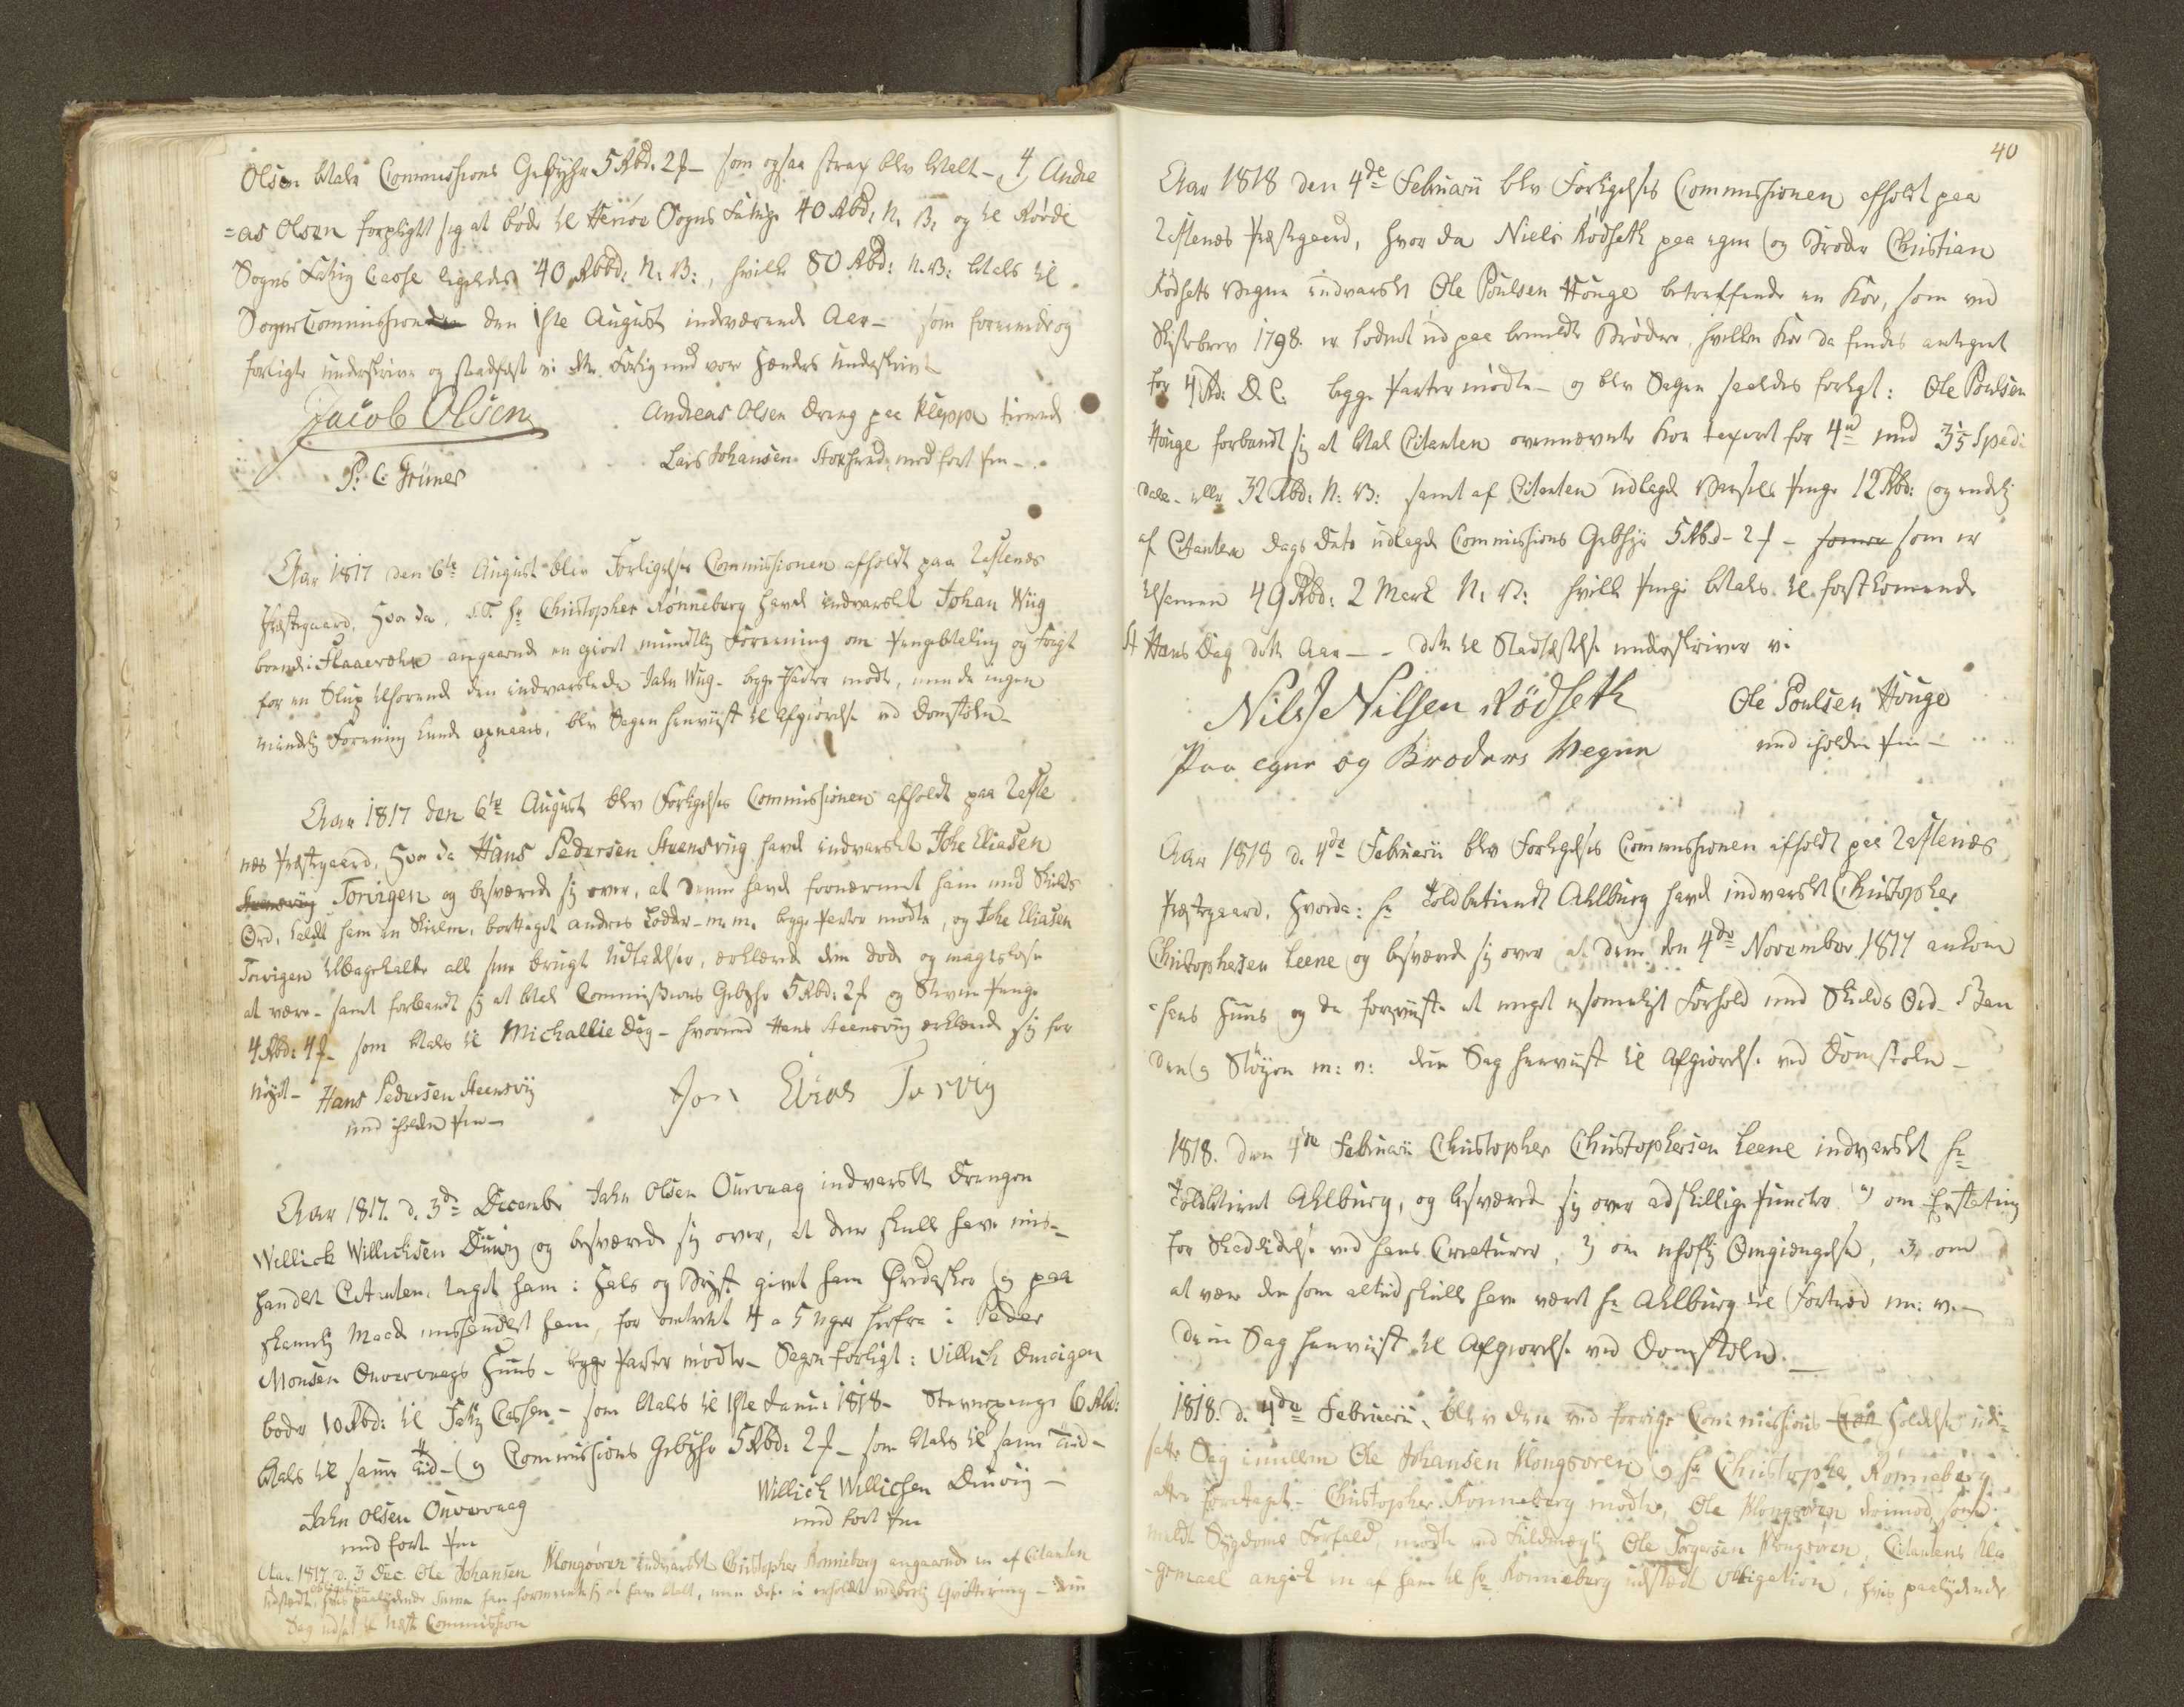 Olsen betale Commissions Gebyhr 5 Rbd. 2 f – som ogsaa strax blev betalt – 4) Andre
=as Olsen forpligt sig at bøde til Herröe Sogns Fattige 40 Rbd: N. B. og til Røvde
Sogns Fattig Casse ligeledes 40 Rbd: N: B:, hvilke 80 Rbd: N. B: betales til
Sogne Commissionen den 1ste August indeværende Aar – som foreenede og
forligte underskrive og stadfæste vi dette Forlig med vore Hænders Underskrivt
Jacob Olsen
Andreas Olsen Dreng paa Kleppe tienende
P. C. Grüner
Lars Johansen Storhund, med ført Pen –
Aar 1817 den 6te August blev Forligelses Commissionen afholdt paa Zeflenæs
Præstegaard, Hvor da S. T. Hr Christopher Rønneberg havde indvarslet Johan Wiig
boende i Flaaevæhr angaaende en giort mundtlig Foreening om Pengebetaling og Fragt
for en Slup tilhørende den indvarslede Jahn Wiig – begge Parter mødte, men da ingen
mindelig Forening kunde opnaaes, blev Sagen henviist til Afgiørelse ved Domstolen –
Aar 1817 den 6te August blev Forligelses Commissionen afholdt paa Zefle
næs Præstegaard, Hvor da Hans Pedersen Steensviig havde indvarslet John Eliasen
Steensviig Torvigen og besværede sig over, at denne havde fornærmet ham med Skields
Ord, kaldt ham en Skielm, borttaget andres Lodder m. m. begge Parter mødte, og John Eliasen
Torvigen tilbagekaldte all sine brugte Udladelser, erklærede dem døde og magtesløse
at være – samt forbandt sig at betale Commissions Gebyhr 5 Rbd: 2 f og Stevne Penge
4 Rbd: 4 f – som betales til Michallie Dag – hvormed Hans Steensviig erklærede sig for
nøyet – Hans Pedersen Steensvig
med iholden Pen –
Jon Elias Torvig
Aar 1817. d. 3de December Jahn Olsen Ourvaag indvarslet Drengen
Willick Willichsen Duviig og besværede sig over, at denne skulle have mis-
handlet Citanten, taget ham i Hals og Bryst givet ham Øredasker og paa
skammelig Maade mishandlet ham, for omtrent 4 a 5 Uger herfra i Peder
Monsen Ourvaags Huus – begge Parter mødte – Sagen forligt: Willich Duvigen
bøder 10 Rbd: til Fattig Cassen – som betales til 1ste Janu: 1818 – Stevnepenge 6 Rbd:
betales til samme Tid – og Commissions Gebyhr 5 Rbd: 2 f – som betales til samme Tid –
Jahn Olsen Ourvaag
med ført Pen
Willick Willichsen Duviig –
med ført Pen
Aar 1817 d. 3 Dec. Ole Johansen Mongsøren indvarslet Christopher Rønneberg angaaende en af Citanten
udstædt obligation, hvis paalydende Summa han formeente sig at have betalt, men derfor ei erholdet vedbørlig Qvittering – denne
Sag udsat til næste Commission
40
Aar 1818 den 4de Februarii blev Forligelses Commissionen afholdt paa
Zeflenæs Præstegaard, hvor da Niels Rødseth paa egne og Broder Christian
Rødsets Vegne indvarslet Ole Poulsen Houge betreffende en Koe, som ved
Skiftebrev 1798 er lodnet ud paa bemeldte Brødre, hvilken Koe da findes antegnet
for 4 Rd: D. C. begge Parter mødte – og blev Sagen saaledes forligt: Ole Poulsen
Houge forbandt sig at betale Citanten ovennævnte Koe taxeret for 4 rd med 3 1/5 Specie
daler – eller 32 Rbd: N: B: samt af Citanten udlagde Varsels Penge 12 Rbd: og endelig
af Citanten Dags Dato udlagde Commissions Gebhyr 5 Rbd – 2 f – som er
tilsammen 49 Rbd: 2 Mark N: V: hvilke Penge betales til førstkommende
St Hans Dag dette Aar – – dette til Stadfæstelse underskriver vi
Nils Nilsen Rødseth
Paa egne og Broders Vegne
Ole Poulsen Houge
med iholden Pen –
Aar 1818 d. 4de Februarii blev Forligelses Commissionen afholdt paa Zeflenæs
Præstegaard, Hvorda: Hr Toldbetient Ahlburg havde indvarslet Christopher
Christophersen Leene og besværede sig over at denne den 4de November 1817 ankom
i hans Huus og da forøvede et meget usømmeligt Forhold med Skields Ord Ban
den og Støyen m: v: denne Sag henviist til Afgiørelse ved Domstolen –
1818. den 4de Februarii Christopher Christophersen Leene indvarslet Hr
Toldbetient Ahlburg, og besværede sig over adskillige Puncter 1) om Erstatning
for Skadelidelse ved hans Creaturer, 2) om uhøflig Omgiængelse, 3, om
at være den som altid skulle have været Hr Ahlburg til Fortræd m: v –
denne Sag henviist til Afgiørelse ved Domstolen. –
1818. d. 4de Februarii, blev den ved forrige Commissions Holdelse ud-
satte Sag imellem Ole Johansen Mongsøren og Hr Christopher Rønneberg
atter foretaget – Christopher Rønneberg mødte, Ole Mongsøren derimod, som
meldte Sygdoms Forfald, mødte ved Fuldmægtig Ole Torgersen Mongsøren, Citantens Kla
=gemaal angik en af ham til Hr Rønneberg udstædt Obligation, hvis paalydende